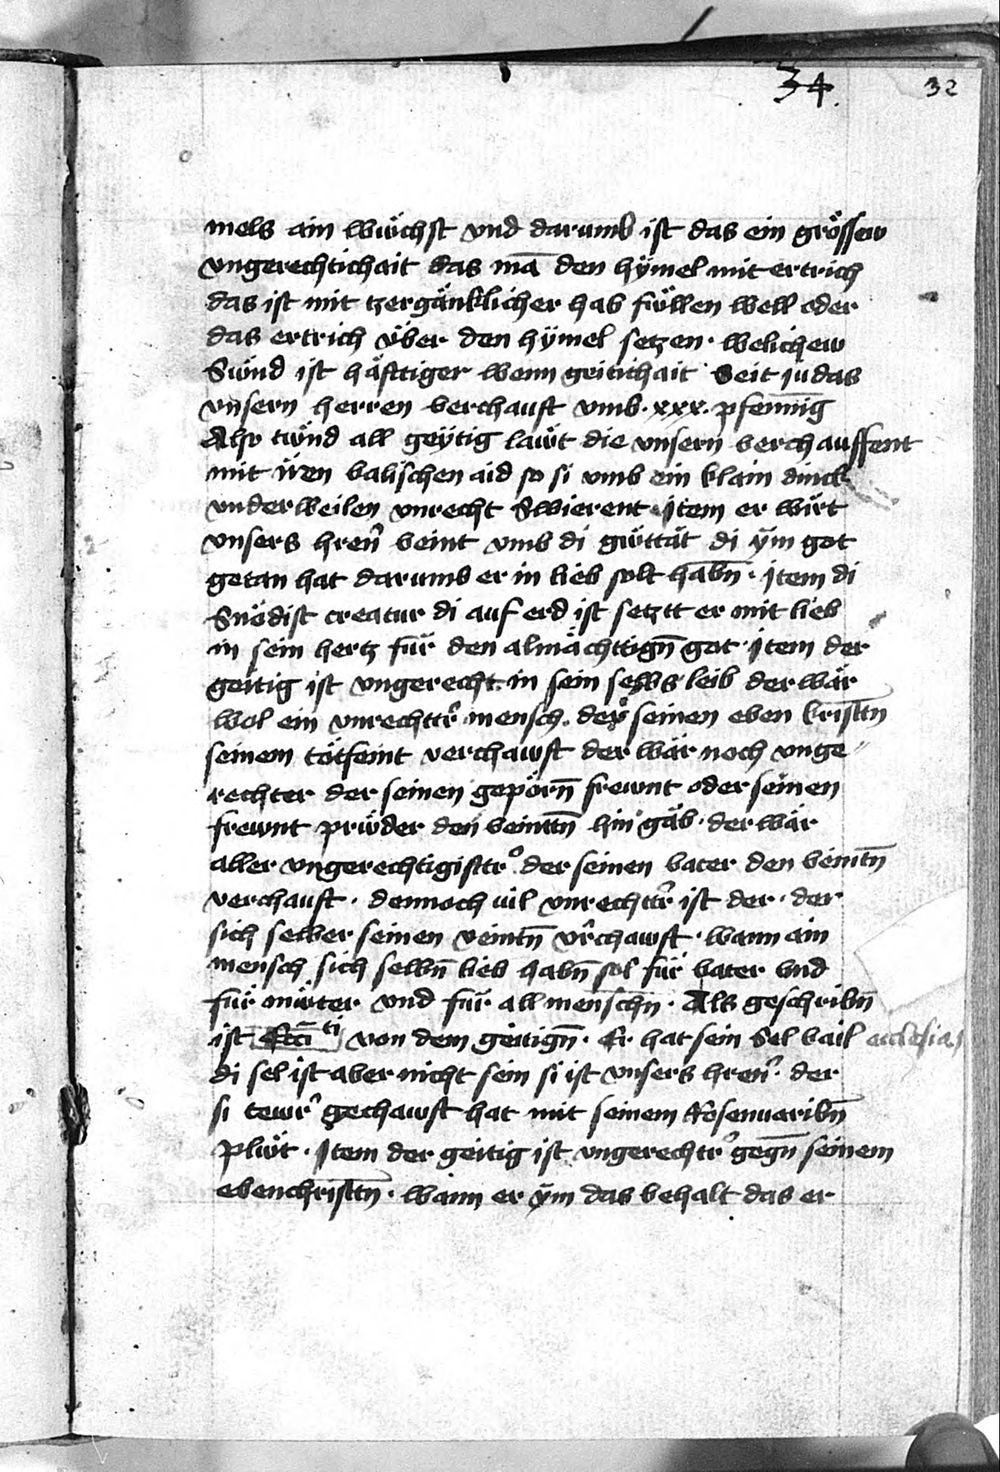 34.
32
mels ain wüchst vnd darumb ist das ein grössew
vngerechtichait das mā den hÿmel mit ertrich
das ist mit tzergänklicher hab füllen well oder
das ertrich über den hÿmel setzen · welichew
Sünd ist häfttiger wenn geitichait Seit iudas
vnsern herren verchauft vmb · xxx · pfenīng
Also tünd all geÿtig läwt die vnsern verchauffent
mit iren valischen aid so si vmb ein klain dinck
vnderweilen vnrecht Swierent Item er wirt
vnsers hren̄ veint vmb di güttät di ÿm got
getan hat darumb er in lieb solt habn̄ · Item di
Snödist creatur di auf erd ist setztt er mit lieb
in sein hertz für den almächttign̄ got · Item der
geitig ist vngerecht in sein selbs leib der wär
wol ein vnrechttr mensch · der seinen eben kristtn̄
seinem tötfeint verchawft der wär noch vnge〃
rechter der seinen geporn̄ frewnt oder seinen
frewnt prüder den veinttn̄ hin gäb · der wär
aller vngerechtigisttr der seinen vater den veintn̄
verchauft · dennoch vil vnrechttr ist der · der
sich selber seinen veintn̄ vrchawft · wann ain
mensch sich selbn̄ lieb habn̄ sol für vater vnd
für müter vnd für all menschn̄ · Als geschribn̄
ist von dem geitign̄ · Er hat sein Sel vail ecclesias
di sel ist aber nicht sein si ist vnsers hren̄ · der
si tewr gechawft hat mit seinem Rosenuaribn̄
plüt · Item der geitig ist vngerechtr gegn̄ seinem
ebenchristtn̄ · wann er ÿm das behalt das er